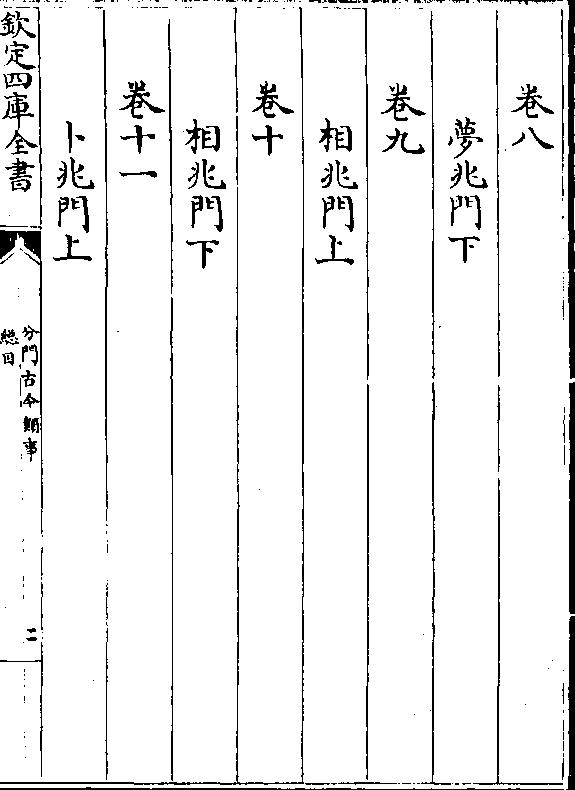 卷八
夢兆門下
卷九
相兆門上
卷十
相兆門下
卷十一
卜兆門上
欽定四庫全書
分門古今類事
總目
二